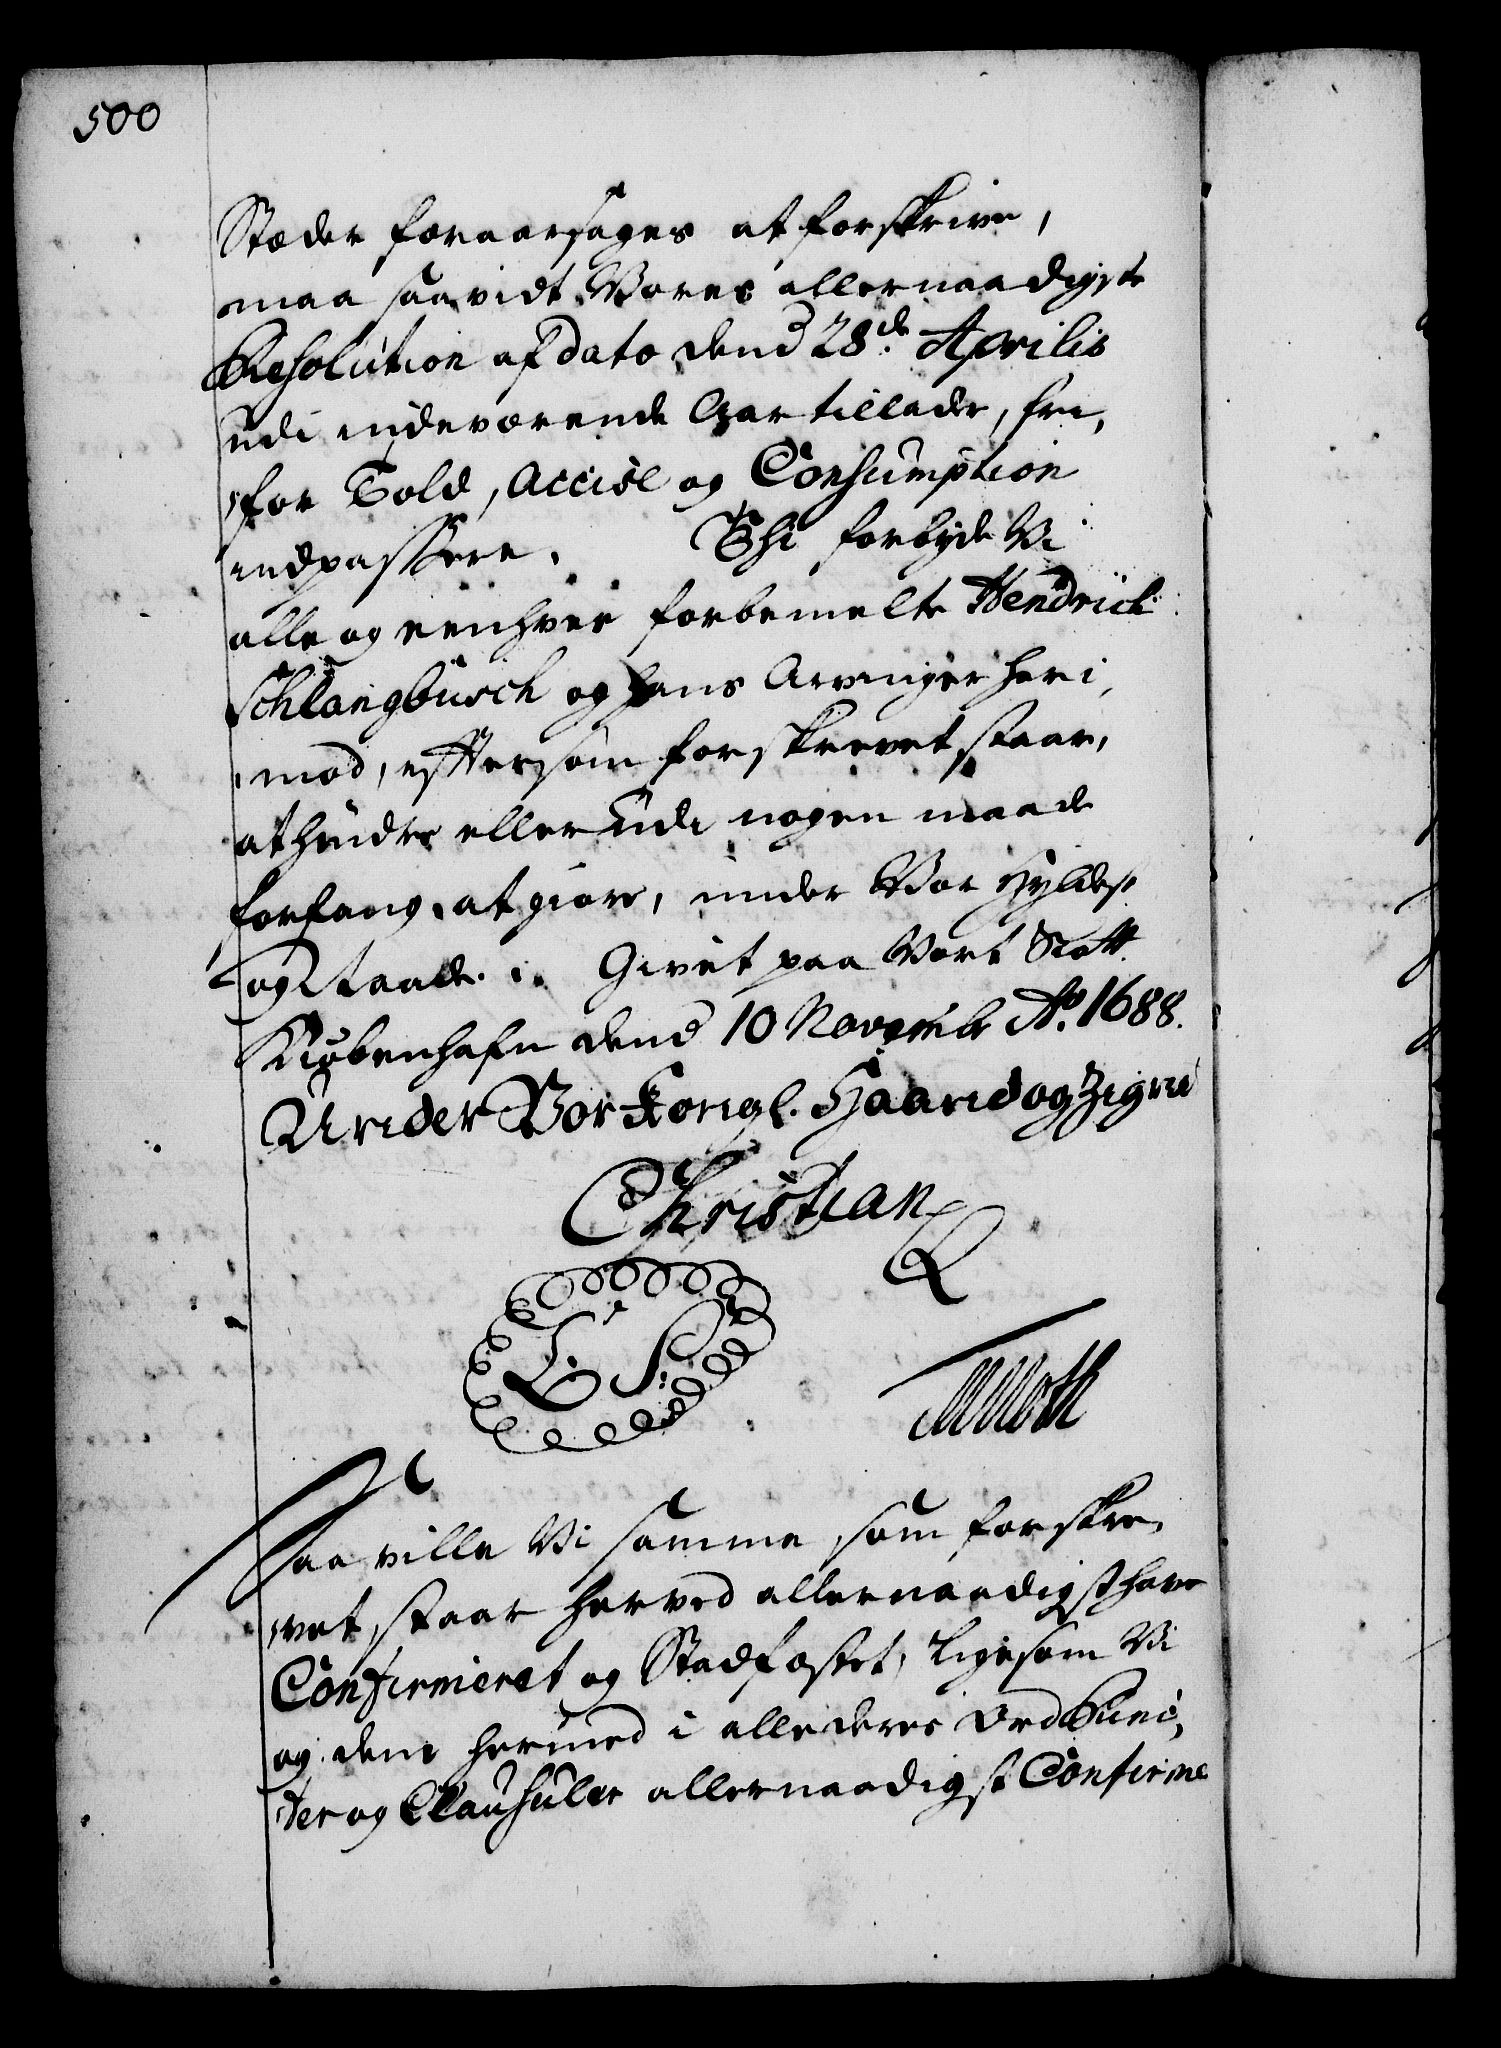 500
Steder foraarsages at forskrive,
maa saavidt Vores allernaadigste
Resolution af Dato dend 28de Aprilis
udi indeværende Aar tillader, frj,
for Told, Accise og Consumption
indpassere. Thi forbyde Vi
alle og eenhver forbemelte Hendrich
Schlangbusch og hans Arvinger heri,
mod, eftersom forskrevet staar,
at hindre eller udi nogen maade
forfang at giøre, under Vor Hyldest
og Naade. Givet paa Vort Slott
Kiøbenhafn dend 10 Novembr Ao. 1688.
Under Vor Kongl. Haand og Zigne
Christian
L. S.
MMoth
Saa ville Vi samme som forskre,
vet staar herved allernaadigst have
Confirmeret og Stadfæstet, ligesom Vi
og dem hermed i alle deres Ord Punc,
ter og Clausuler allernaadigst Confirme